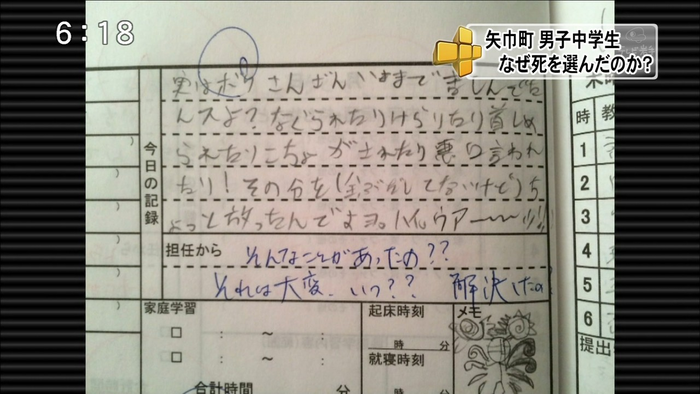 6:18
矢巾町 男子中学生
なぜ死を選んだのか?
今日の記録
実はボク さんざんいままで苦しんでた
んスよ?なぐられたりけらりたり首しめ
られたりこちょがされたり悪口言われ
たり!その分を(全ぶだしてないけど)ち
ょっと放ったんですよヨ。
担任から
そんなことがあったの??
それは大変、いつ?? 解決したの
家庭学習
□ : ~ :
□ : ~ :
合計時間 分
起床時刻
時 分
就寝時刻
時 分
メモ
時
1
2
3
4
5
6
提出